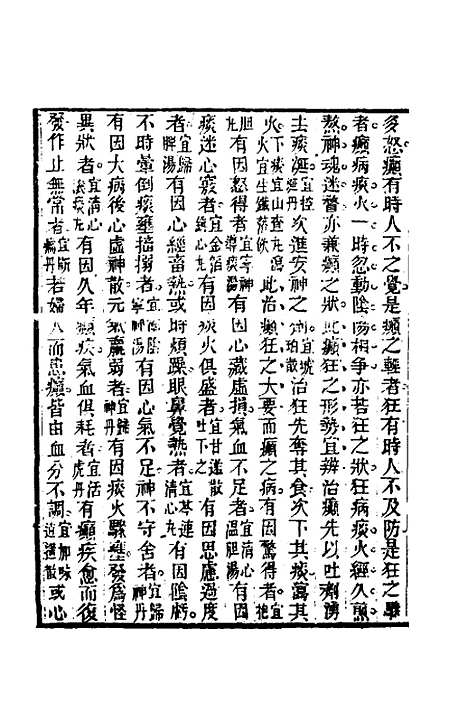 多怒癲有時人不之覺是癲之輕者狂有時人不及防是狂之驟
者癲病痰火一時忽動陰陽相爭亦若狂之狀狂病痰火經久煎
熬神魂迷瞀亦兼癲之狀此癲狂之形勢宜辨治癲先以吐劑湧
去痰涎宜控涎丹次進安神之劑宜琥珀散治狂先奪其食次下其痰瀉其
火下痰宜山查丸瀉火宜生鐵落飲此治癲狂之大要而癲之病有因驚得者宜抱
膽丸有因怒得者宜寧神導痰湯有因心臟虛損氣血不足者宜溫膽湯有因
痰迷心竅者宜金箔鎮心丸有因痰火俱盛者宜甘遂散吐下之有因思慮過度
者宜歸脾湯有因心經畜熱或時煩躁眼鼻覺熱者宜芩連清心丸有因陰虧
不時暈倒痰壅搐搦者宜滋陰寧神湯有因心氣不足神不守舍者宜歸神丹
有因大病後心虛神散元氣羸弱者宜歸神丹有因痰火驟壅發爲怪
異狀者宜清心滾痰丸有因久年癲疾氣血俱耗者宜活虎丹有癲疾愈而復
發作止無常者宜斷癇丹若婦人而患癲皆由血分不調宜加味逍遙散或心